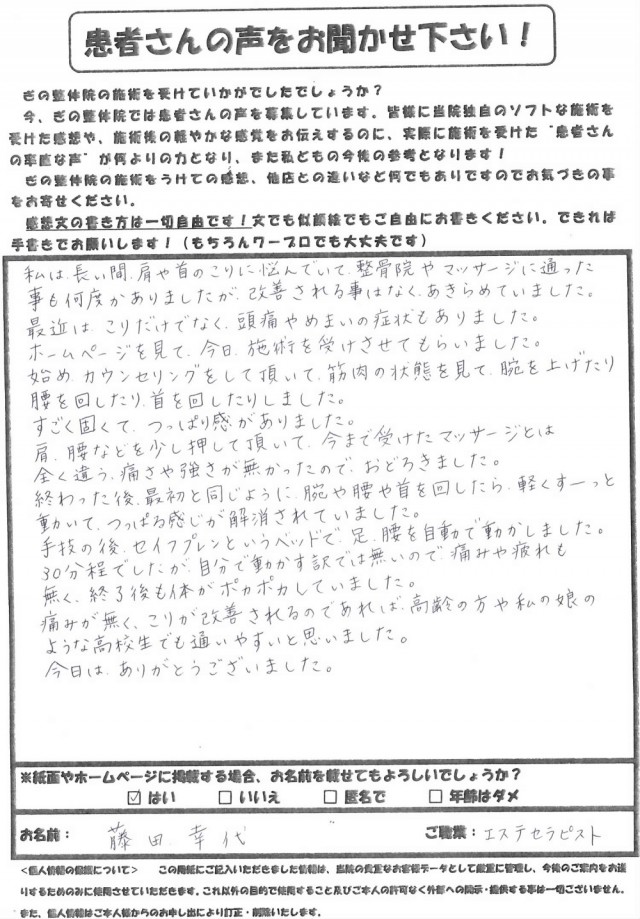 患者さんの声をお聞かせ下さい！
ぎの整体院の施術を受けていかがでしたでしょうか？
今、ぎの整体院では患者さんの声を募集しています。皆様に当院独自のソフトな施術を
受けた感想や、施術後の軽やかな感覚をお伝えするのに、実際に施術を受けた“患者さん
の率直な声”が何よりの力となり、また私どもの今後の参考となります！
ぎの整体院の施術をうけての感想、他店との違いなど何でもありですのでお気づきの事
をお寄せください。
感想文の書き方は一切自由です！文でも似顔絵でもご自由にお書きください。できれば
手書きでお願いします！（もちろんワープロでも大丈夫です）
私は、長い間、肩や首のこりに悩んでいて、整骨院やマッサージに通った
事も何度かありましたが、改善される事はなく、あきらめていました。
最近は、こりだけでなく、頭痛やめまいの症状もありました。
ホームページを見て、今日、施術を受けさせてもらいました。
始め、カウンセリングをして頂いて、筋肉の状態を見て、腕を上げたり
腰を回したり、首を回したりしました。
すごく固くて、つっぱり感がありました。
肩、腰などを少し押して頂いて、今まで受けたマッサージとは
全く違う、痛さや強さが無かったので、おどろきました。
終わった後、最初と同じように、腕や腰や首を回したら、軽くすーっと
動いて、つっぱる感じが解消されていました。
手技の後、セイフプレンというベッドで、足、腰を自動で動かしました。
30分程でしたが、自分で動かす訳では無いので、痛みや疲れも
無く、終了後も体がポカポカしていました。
痛みが無く、こりが改善されるのであれば、高齢の方や私の娘の
ような高校生でも通いやすいと思いました。
今日は、ありがとうございました。
※紙面やホームページに掲載する場合、お名前を載せてもよろしいでしょうか？
☑ はい　□ いいえ　□ 匿名で　□ 年齢はダメ
お名前： 藤田 幸代　ご職業： エステセラピスト
＜個人情報の保護について＞　この用紙にご記入いただきました情報は、当院の貴重なお客様データとして厳重に管理し、今後のご案内をお送
りするためのみに使用させていただきます。これ以外の目的で使用すること及びご本人の許可なく外部への開示・提供する事は一切ございません。
また、個人情報はご本人様からのお申し出により訂正・削除いたします。